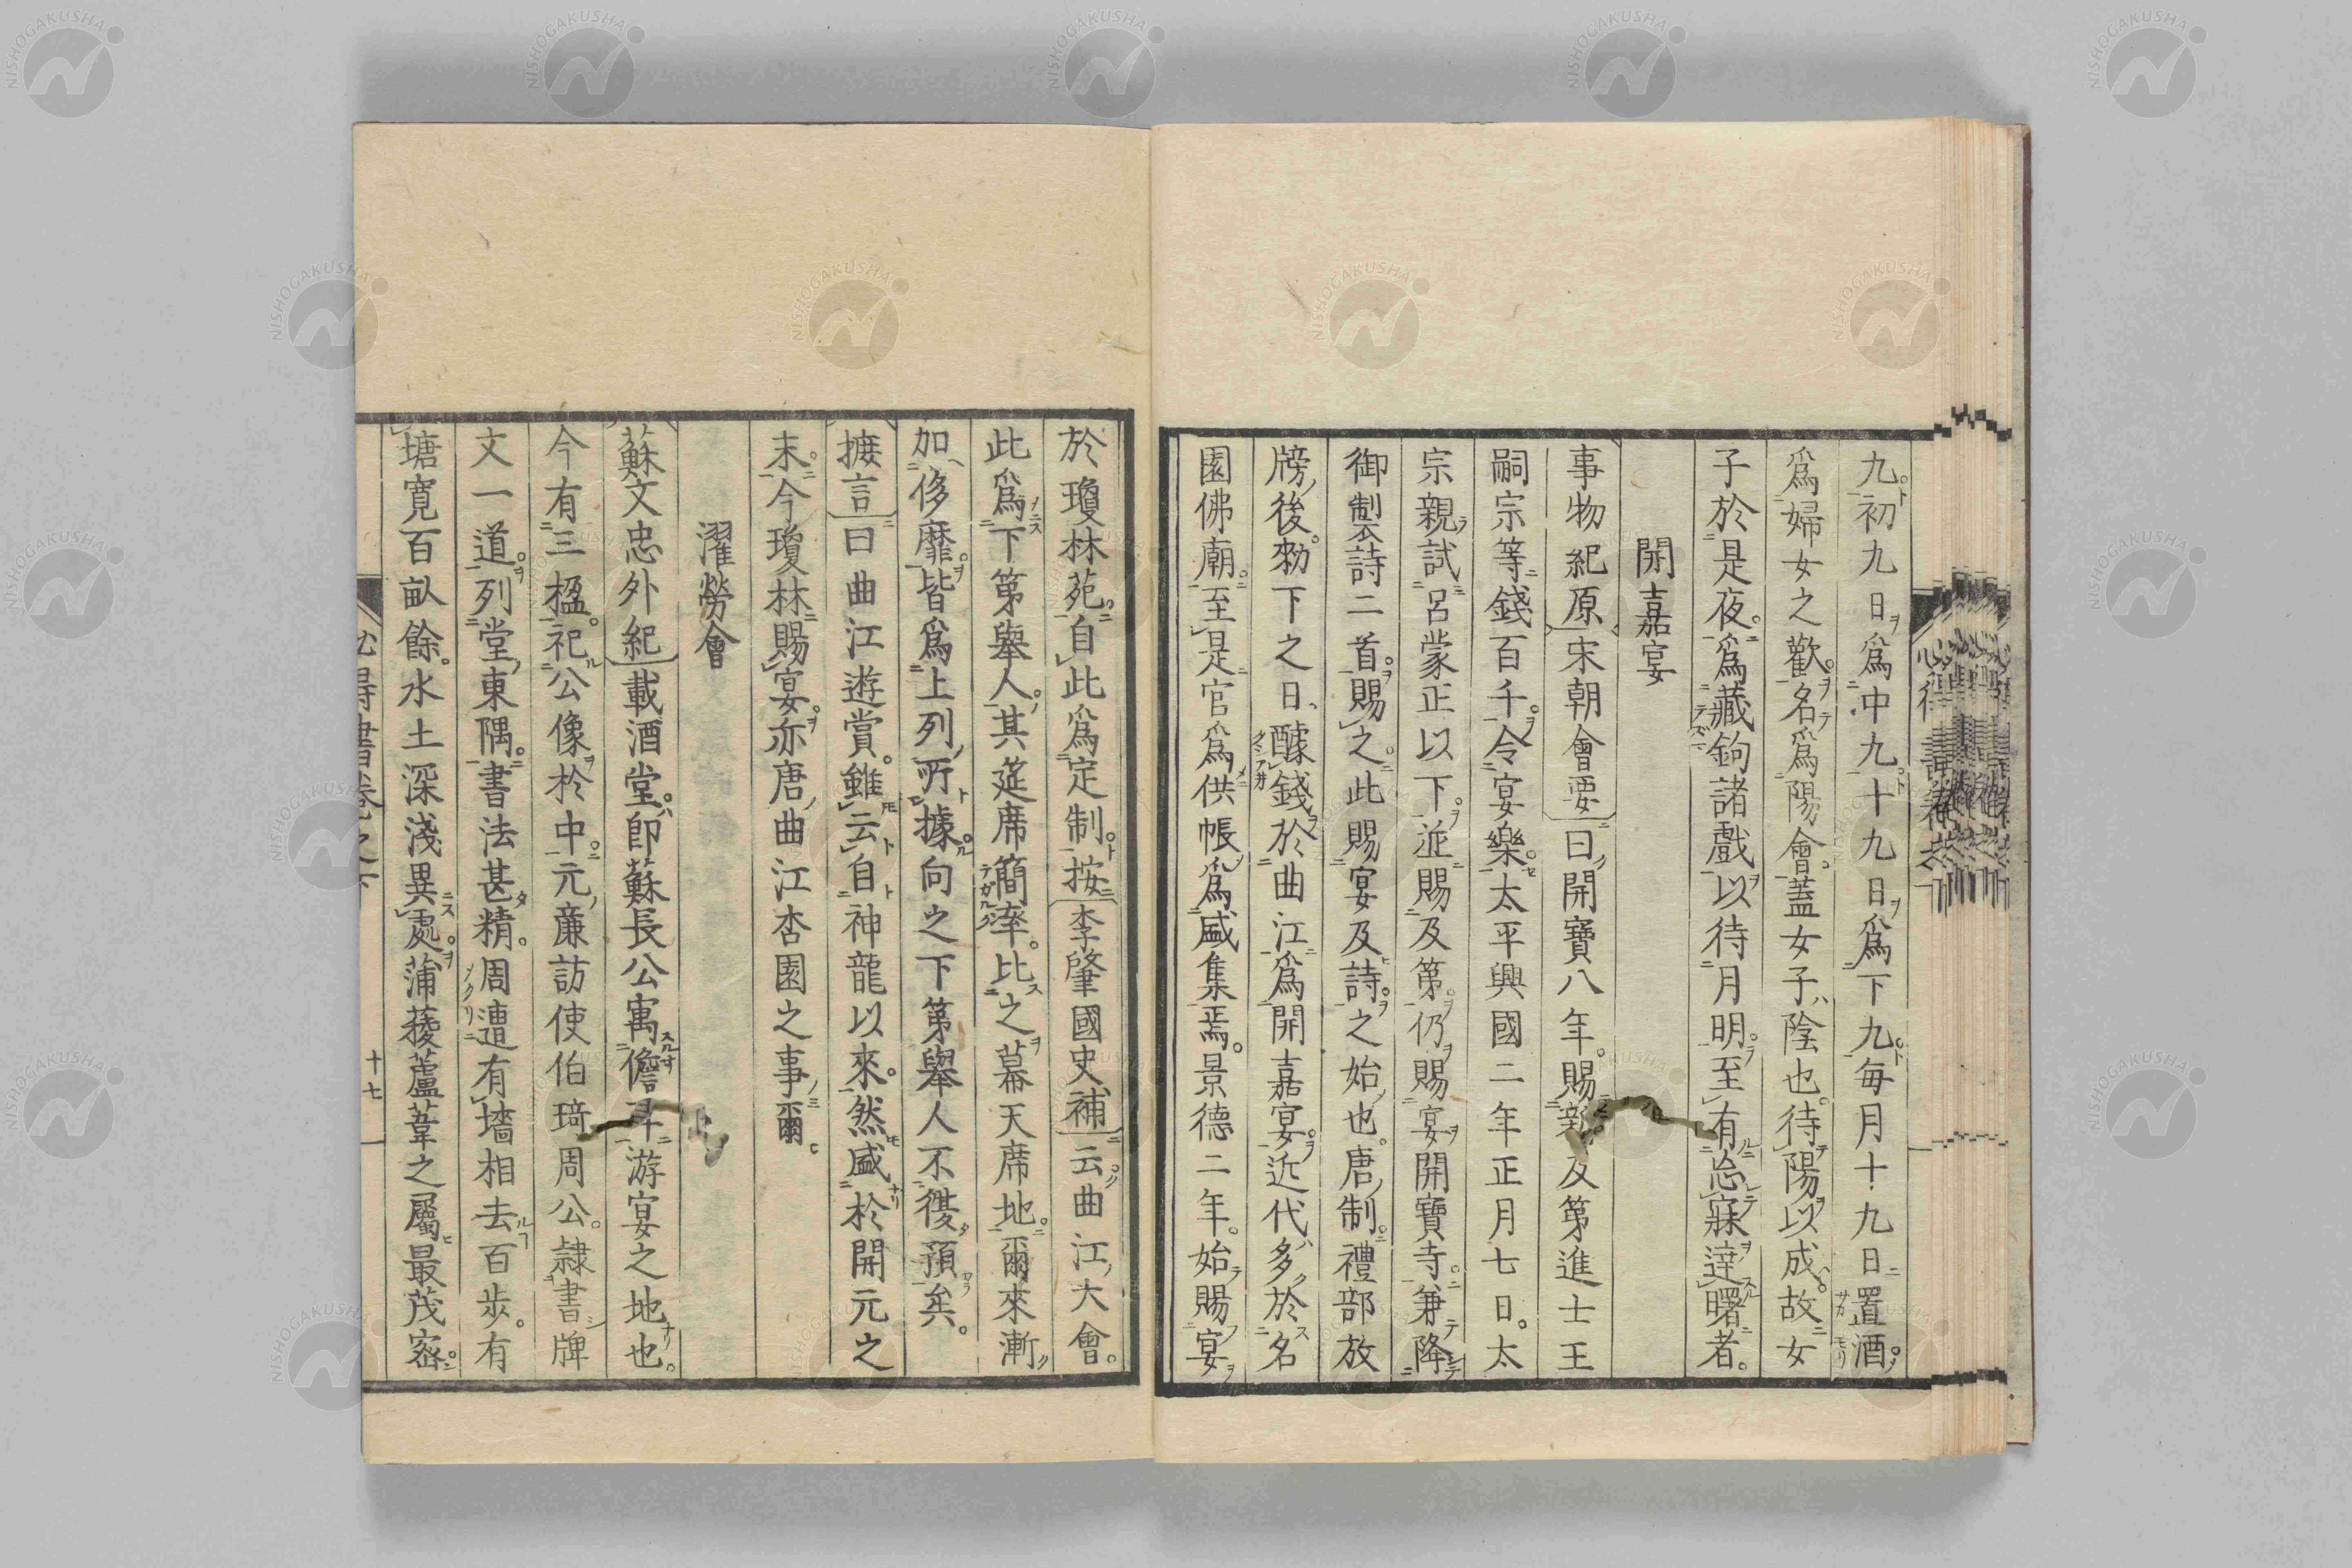 九初九日爲中九十九日爲下九毎月十九日置酒
爲婦女之歡名爲陽會蓋女子陰也待陽以成故女
子於是夜爲藏鉤諸戲以待月明至有忘寐達曙者
開嘉宴
事物紀原宋朝會要曰開寶八年賜新及第進士王
嗣宗等錢百千令宴樂太平興國二年正月七日太
宗親試呂蒙正以下並賜及第仍賜宴開寶寺兼降
御製詩二首賜之此賜宴及詩之始也唐制禮部放
牓後勑下之日醵錢於曲江爲開嘉宴近代多於名
園佛廟至是官爲供帳爲盛集焉景德二年始賜宴
於瓊林苑自此爲定制按李肇國史補云曲江大會
此爲下第舉人其筵席簡率比之幕天席地爾來漸
加侈靡皆爲上列所據向之下第舉人不復預矣
摭言曰曲江遊賞雖云自神龍以來然盛於開元之
末今瓊林賜宴亦唐曲江杏園之事爾
濯勞會
蘇文忠外紀載酒堂卽蘇長公寓儋耳游宴之地也
今有三楹祀公像於中元廉訪使伯琦周公隷書牌
文一道列堂東隅書法甚精周遭有墻相去百步有
塘寬百畝餘水土深淺異處蒲薐蘆葦之屬最茂宻
十七
NISHOGAKUSHA